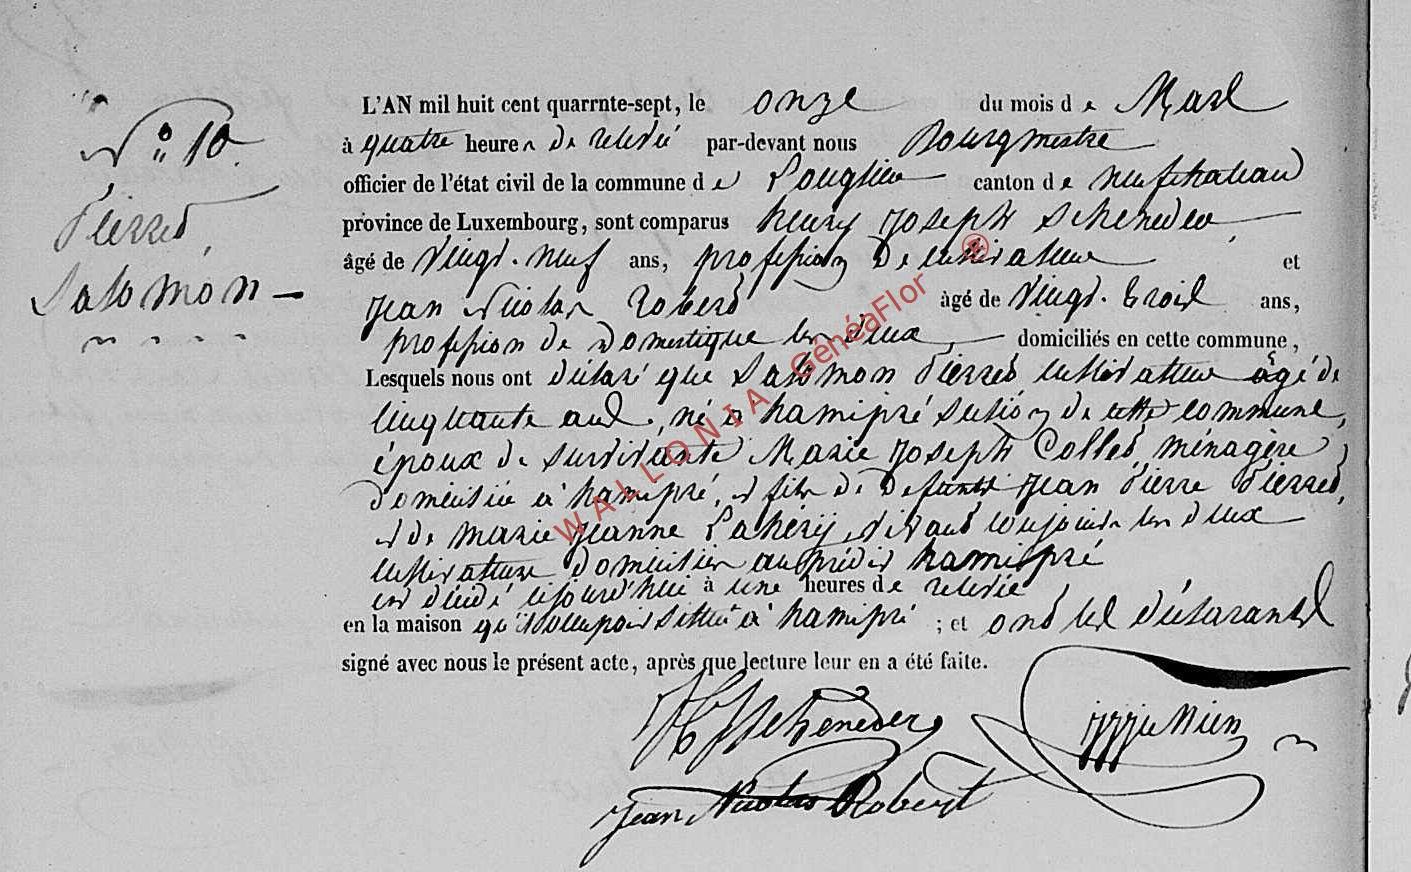 N° 10
Pierret
Salomon
L'AN mil huit cent quarrnte-sept, le onze du mois de Mars
à quatre heures de relevée par-devant nous Bourgmestre
officier de l'état civil de la commune de Longlier canton de neufchateau
province de Luxembourg, sont comparus henry Joseph Scheneder
âgé de vingt-neuf ans, profession de cultivateur et
Jean Nicolas Robert âgé de vingt-trois ans,
profession de domestique les deux domiciliés en cette commune,
Lesquels nous ont déclaré que Salomon Pierret cultivateur âgé de
cinquante ans, né à hamipré section de cette commune,
époux de survivante Marie Joseph Collet ménagère
domiciliée à hamipré, et fils de defunts Jean Pierre Pierret,
et de marie Jeanne vivant conjoints les deux
cultivateurs domiciliés au prédit hamipré
est décédé cejourd'hui à une heures de relevée
en la maison qu'il occupoit située à hamipré ; et ont les déclarants
signé avec nous le présent acte, après que lecture leur en a été faite.
HJScheneder
Jean Nicolas Robert
WALLONIA GénéaFlor ®